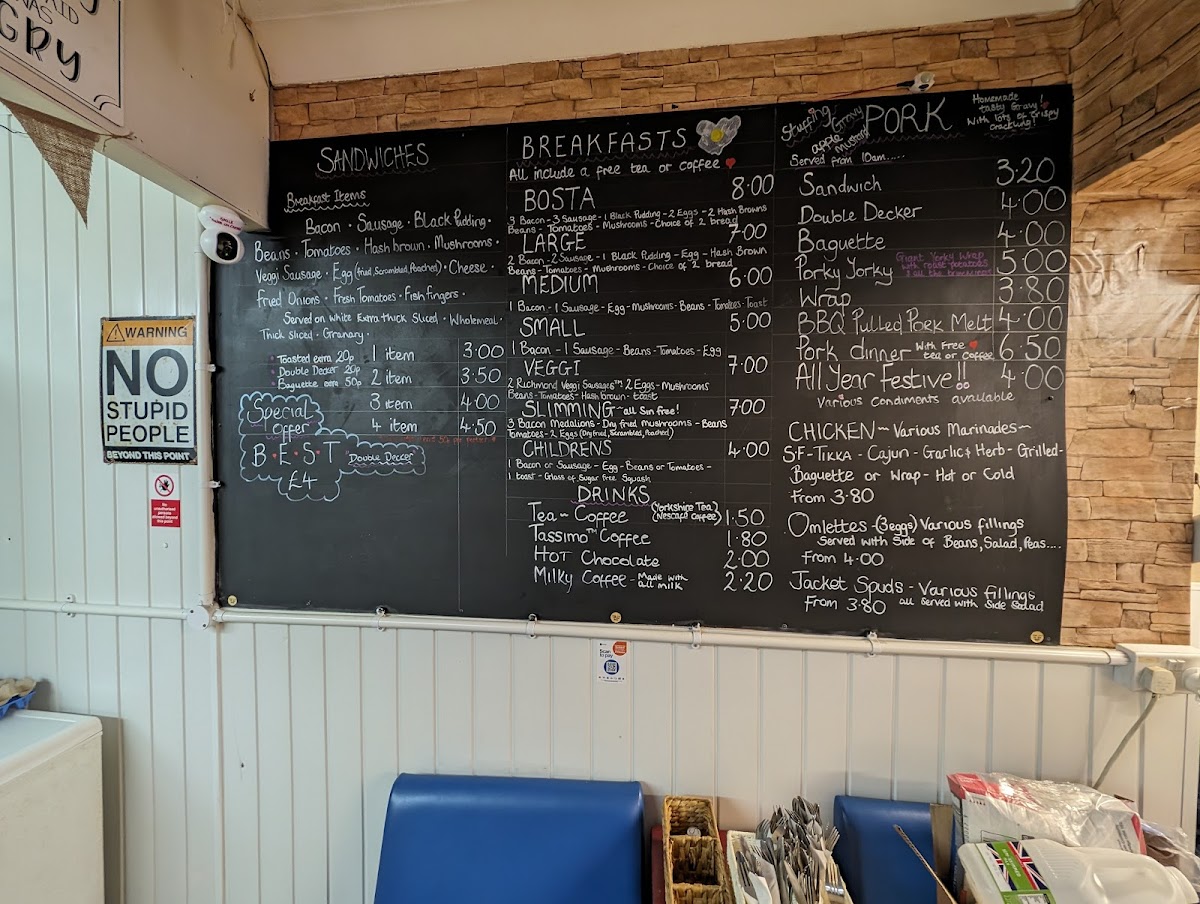 GRY
WARNING
NO
STUPID
PEOPLE
BEYOND THIS POINT
SANDWICHES
Breakfast Items
Bacon · Sausage · Black Pudding ·
Beans · Tomatoes · Hash brown · Mushrooms ·
Veggi Sausage · Egg (fried, Scrambled, Poached) · Cheese ·
Fried Onions · Fresh Tomatoes · Fish fingers ·
Served on White Extra thick Sliced · Wholemeal ·
Thick sliced · Granary ·
Toasted extra 20p
Double Decker 20p
Baguette extra 50p
1 item 3·00
2 item 3·50
3 item 4·00
4 item 4·50
Special
Offer
B·E·S·T Double Decker
£4
BREAKFASTS
All include a free tea or coffee
BOSTA 8·00
3 Bacon - 3 Sausage - 1 Black Pudding - 2 Eggs - 2 Hash Browns
Beans - Tomatoes - Mushrooms - Choice of 2 bread
LARGE 7·00
2 Bacon - 2 Sausage - 1 Black Pudding - Egg - Hash Brown
Beans - Tomatoes - Mushrooms - Choice of 2 bread
MEDIUM 6·00
1 Bacon - 1 Sausage - Egg - Mushrooms - Beans - Tomatoes - Toast
SMALL 5·00
1 Bacon - 1 Sausage - Beans - Tomatoes - Egg
VEGGI 7·00
2 Richmond Veggi Sausages™ 2 Eggs - Mushrooms
Beans - Tomatoes - Hash brown - toast
SLIMMING - all Syn free! 7·00
3 Bacon Medalions - Dry fried mushrooms - Beans
Tomatoes - 2 Eggs (Dry fried, Scrambled, Poached)
CHILDRENS 4·00
1 Bacon or Sausage - Egg - Beans or Tomatoes -
1 toast - Glass of Sugar Free Squash
DRINKS
Tea ~ Coffee (Yorkshire Tea) (Nescafe Coffee) 1·50
Tassimo™ Coffee 1·80
Hot Chocolate 2·00
Milky Coffee - Made with all milk 2·20
Stuffing
Gravy
apple
Mustard
PORK
Homemade
tasty Gravy!
With lots of Crispy
crackling!
Served from 10am.....
Sandwich 3·20
Double Decker 4·00
Baguette 4·00
Porky Yorky Giant Yorky Wrap 5·00
with roast potatoes
& all the trimmings
Wrap 3·80
BBQ Pulled Pork Melt 4·00
Pork dinner With Free tea or coffee 6·50
All Year Festive!! 4·00
Various condiments available
CHICKEN ~ Various Marinades ~
S·F - Tikka - Cajun - Garlic & Herb - Grilled -
Baguette or Wrap - Hot or Cold
From 3·80
Omlettes - (3 eggs) Various fillings
Served with Side of Beans, Salad, Peas....
From 4·00
Jacket Spuds - Various fillings
From 3·80 all Served with Side Salad
Scan
to pay